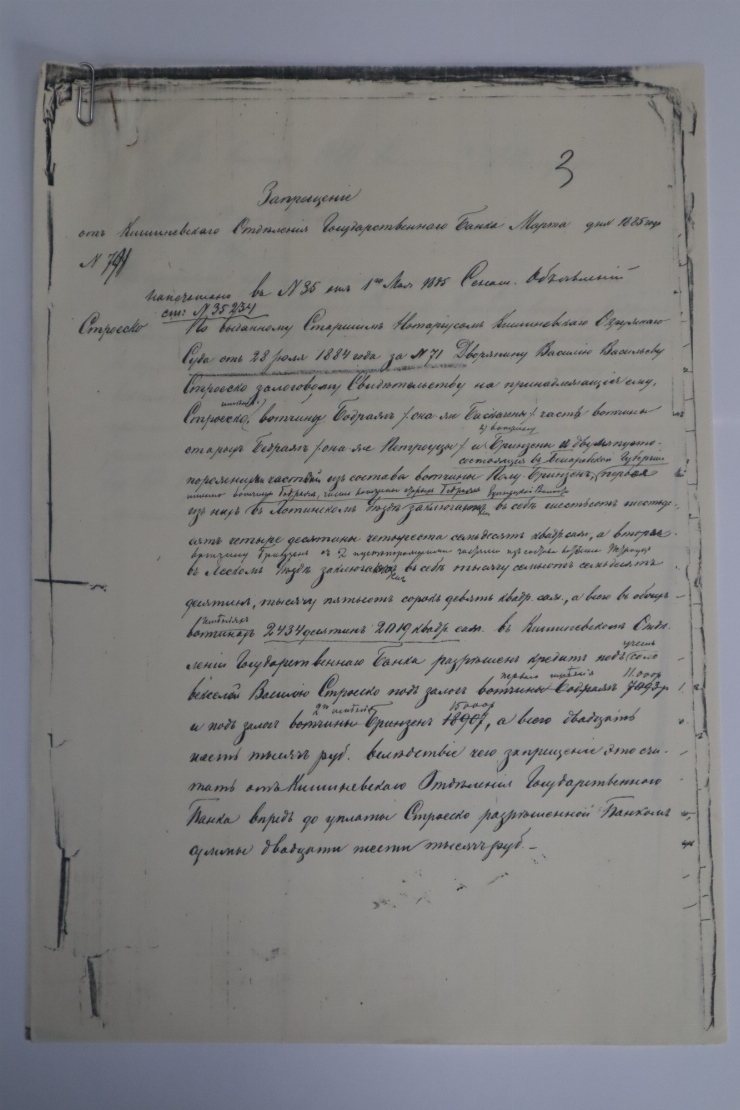 3
Запрещеніе
отъ Кишиневскаго Отдѣленія Государственнаго Банка Марта дня 1885 года
№ 791
напечатано въ № 35 отъ 1го Мая 1885 Сенат. Объявленій
ст: № 35234
Строеско По выданному Старшимъ Нотаріусомъ Кишиневскаго Окружнаго
Суда отъ 28 Іюля 1884 года за № 71 Дворянину Василію Васильеву
Строеско залоговому Свидѣтельству на принадлежащія ему,
Строеско, вотчину Бодражъ /она же часть вотчины
старыхъ Бодражъ /она же Петроуцы/ и Бринзены и двумя пусто-
состоящія въ Бессарабской Губерніи
частями изъ состава вотчины Бринзенъ, первая
изъ нихъ въ Хотинскомъ Уѣздѣ въ себѣ шестьсотъ шестьде-
сятъ четыре десятины четыреста семьдесятъ квадр. саж., а вторая
въ Ясскомъ Уѣздѣ въ себѣ тысячу семьсотъ семьдесятъ
десятинъ, тысячу пятьсотъ сорокъ девять квадр. саж., а всего въ обоихъ
имѣніяхъ
вотчинахъ 2434 десятинъ 2019 квадр. саж. въ Кишиневскомъ Отдѣ-
леніи Государственнаго Банка разрѣшенъ кредитъ подъ соло
перваго имѣнія 11.000р
векселя Василію Строеско подъ залогъ вотчины Бодражъ
2го имѣнія 15000р
и подъ залогъ вотчины Бринзенъ, а всего двадцать
шесть тысячъ руб. вслѣдствіе чего запрещеніе это счи-
тать отъ Кишиневскаго Отдѣленія Государственнаго
Банка впредь до уплаты Строеско разрѣшенной Банкомъ
суммы двадцати шести тысячъ руб. –